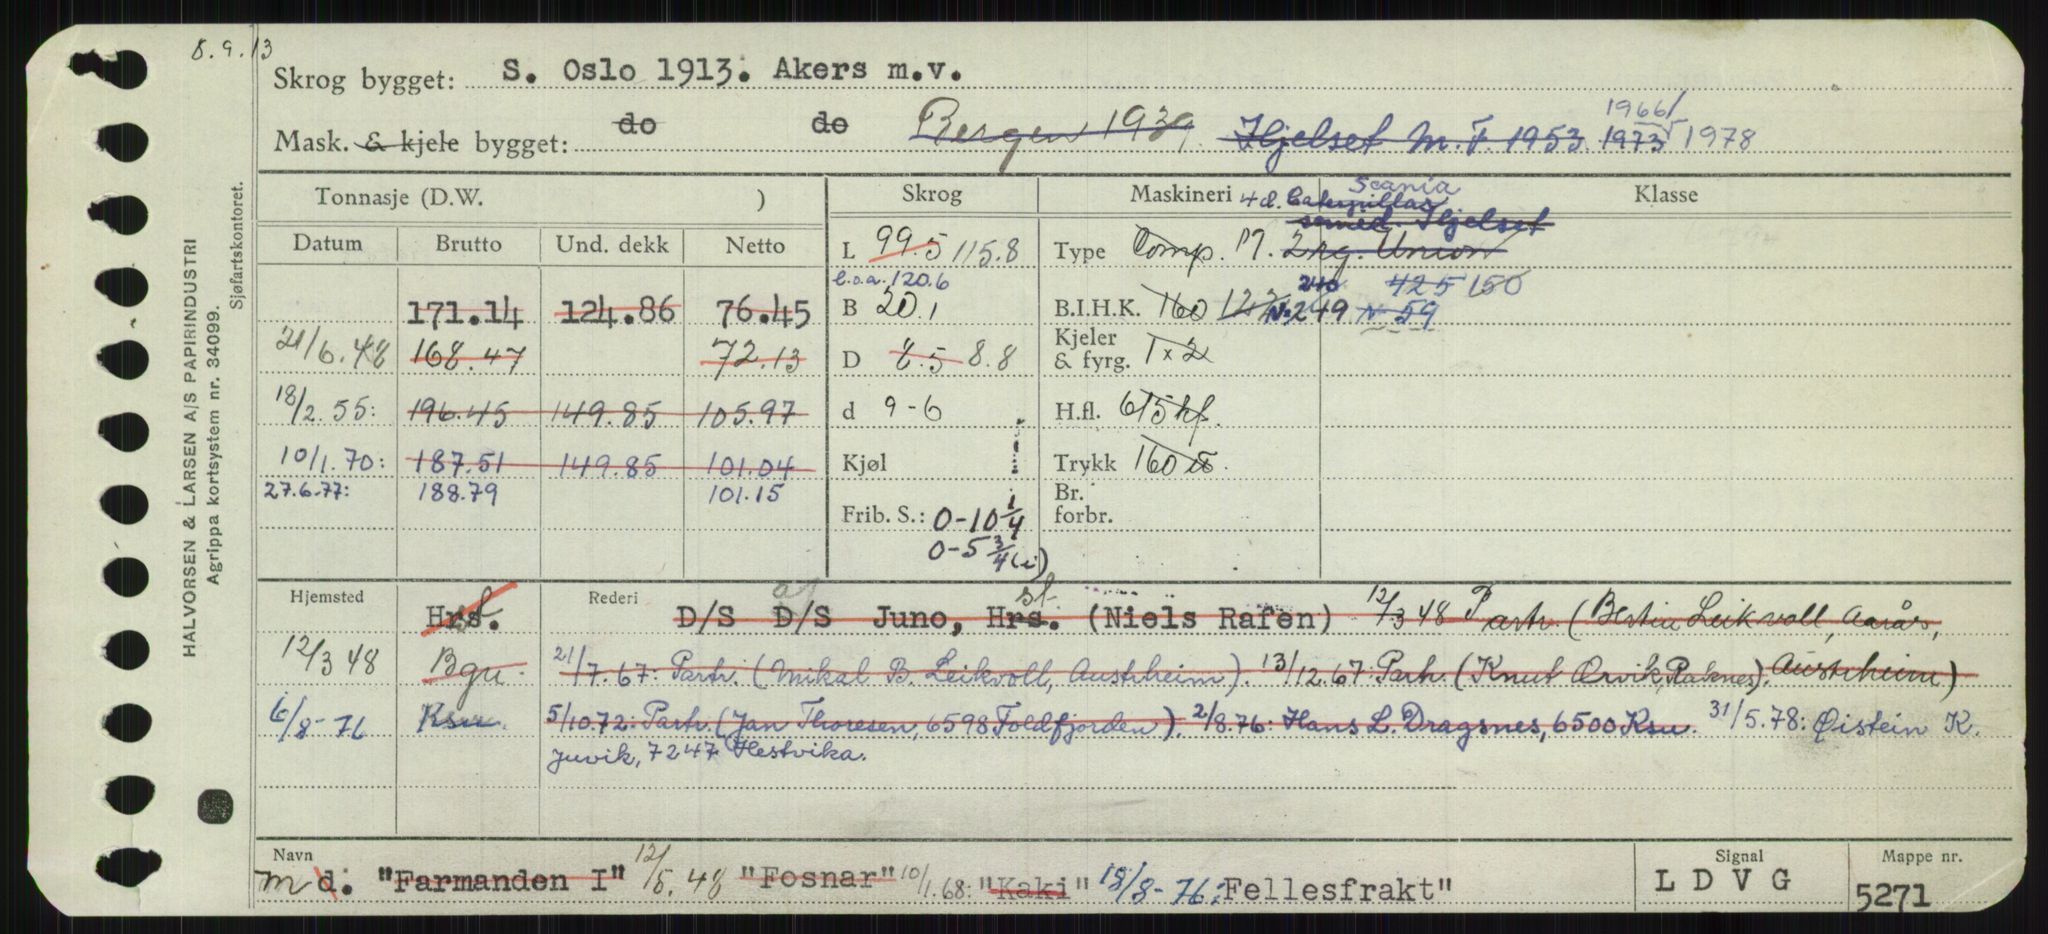 8.9.13
Skrog bygget: S. Oslo 1913. Akers m.v.
1966/
Mask. & kjele bygget: do do Bergen 1939 Hjelset M.F. 1953 1973 1978
Tonnasje (D.W. ) Skrog Maskineri Klasse
4 d. Caterpillar Scania
semid. Hjelset
Datum Brutto Und. dekk Netto
L 99.5 115.8
Type Comp. M. 2 Union
l.o.a. 120.6
171.14 124.86 76.45
B 20.1
240 425 150
B.I.H.K. 160 N. 249 N 59
21/6.48 168.47 72.13
D 8.5 8.8
Kjeler & fyrg. 1x2
18/2.55: 196.45 149.85 105.97
d 9-6
H.fl. 615 hf.
10/1.70: 187.51 149.85 101.04
Kjøl
Trykk 160
27.6.77: 188.79 101.15
Frib. S.: 0-10 1/4
0-5 3/4 (i)
Br. forbr.
Hjemsted Hrs. Rederi D/S D/S Juno, Hrs. (Niels Rafen) 12/3 48 Partr. (Bertin Leikvoll, Aarås,
Austrheim)
12/3 48 Bgn. 21/7.67: Partr. (Mikal B. Leikvoll, Austrheim). 13/12.67: Partr. (Knut Ørvik, Raknes).
6/8-76 Ksu. 5/10.72: Partr. (Jan Thoresen, 6598 Foldfjorden). 2/8.76: Hans L. Dragsnes, 6500 Ksu. 31/5.78: Øistein K.
Juvik, 7247 Hestvika.
Navn Signal Mappe nr.
m d. "Farmanden I" 12/5.48 "Fosnar" 10/1.68: "Kaki" 18/8-76: Fellesfrakt" L D V G 5271
HALVORSEN & LARSEN A/S PAPIRINDUSTRI
Agrippa kortsystem nr. 34099.
Sjøfartskontoret.